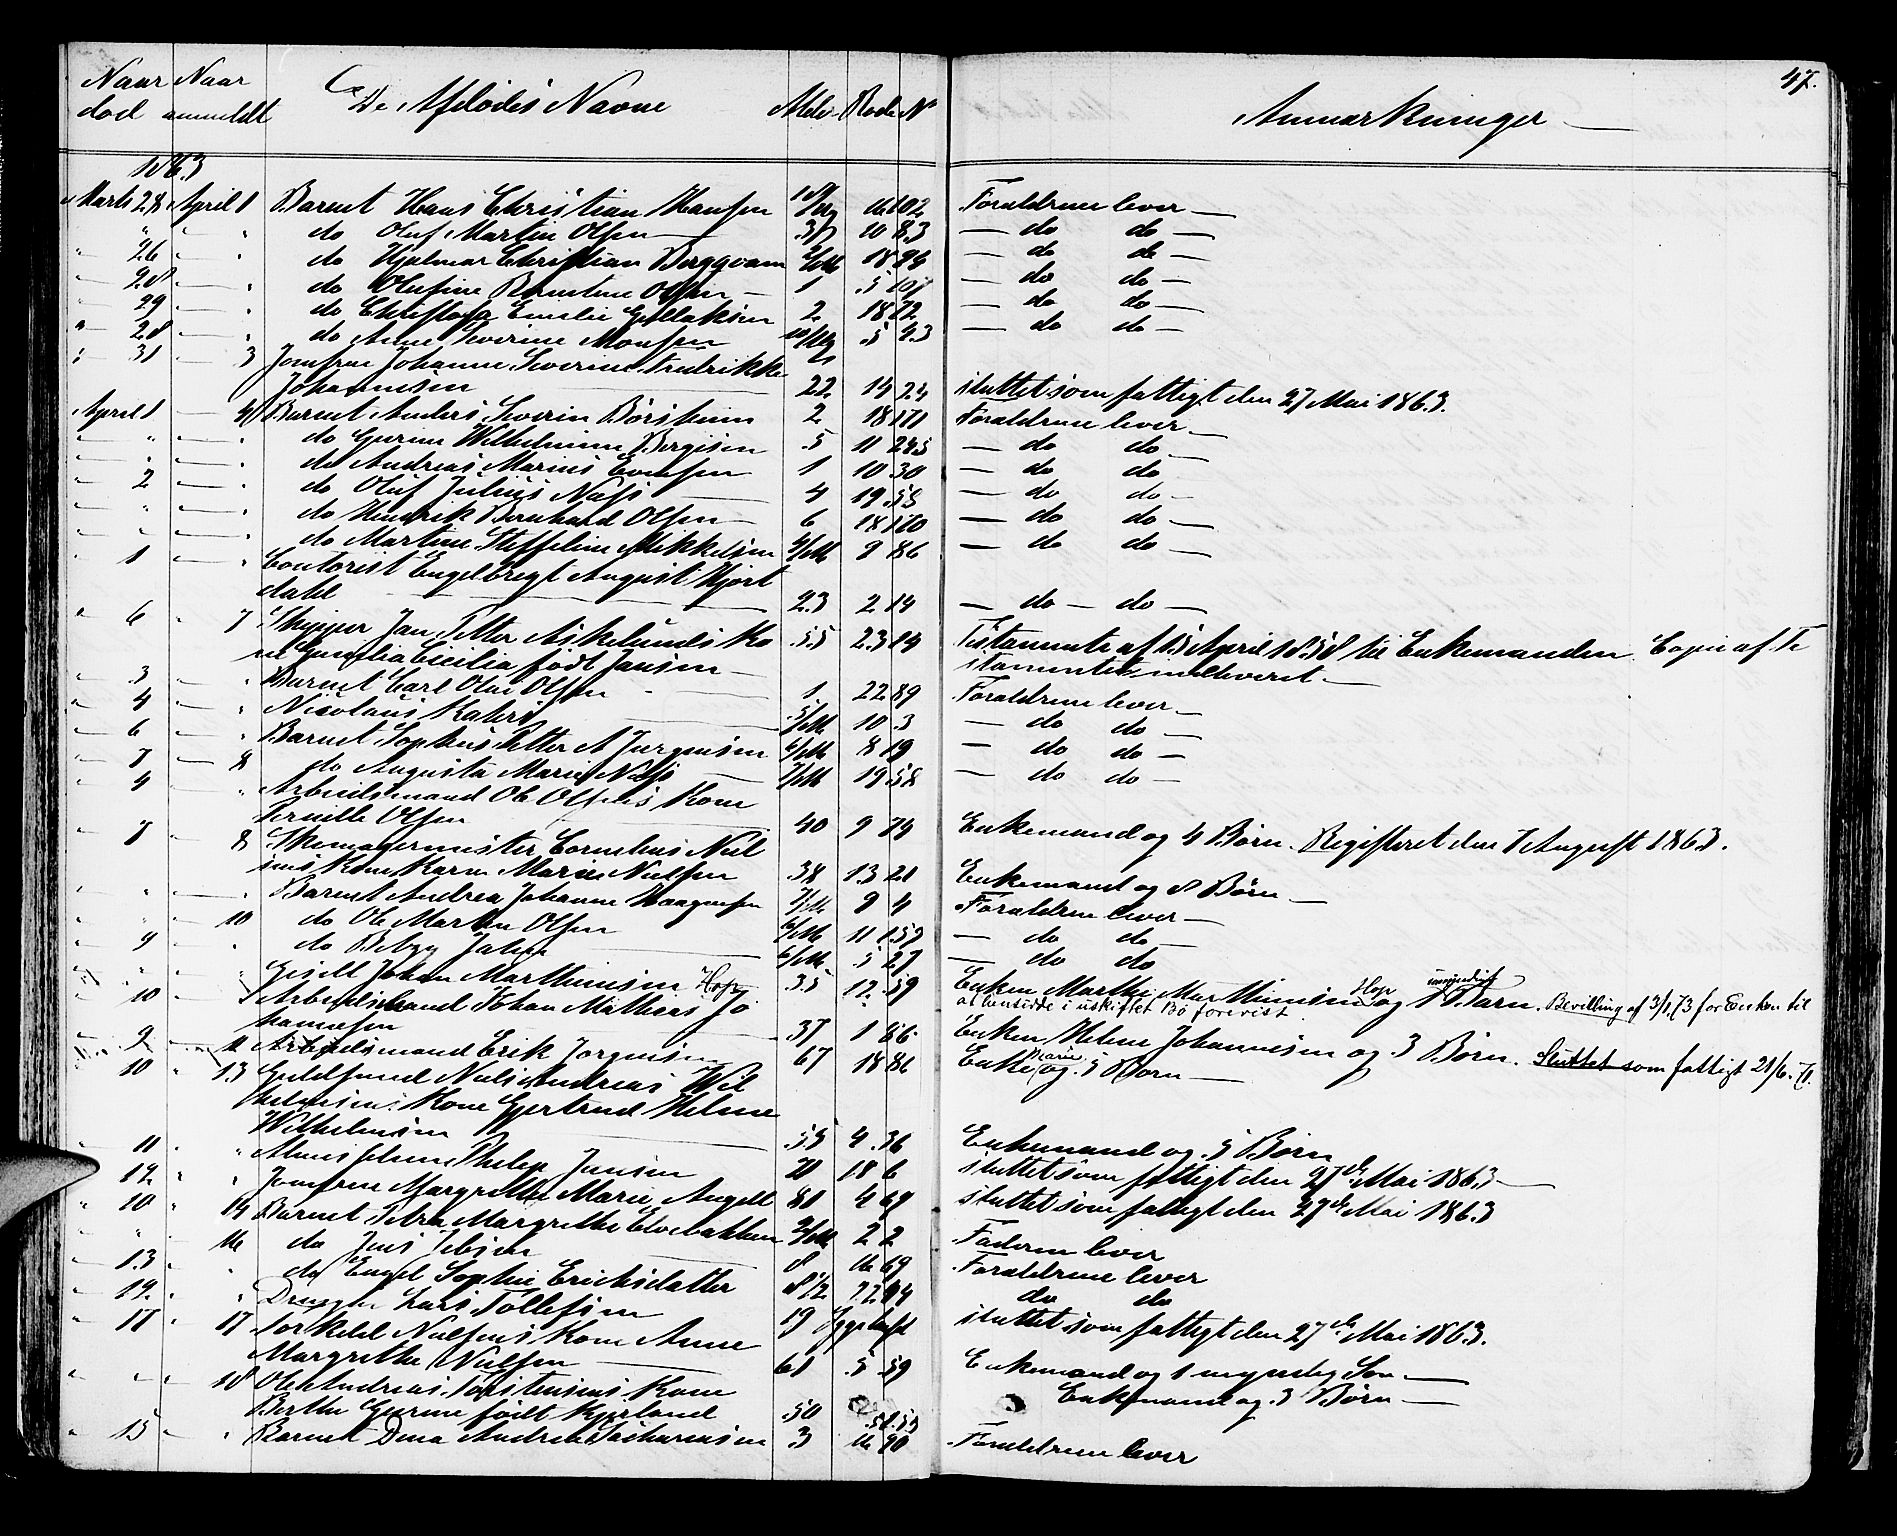 47.
Naar død Naar anmeldt De Afdødes Navne Alder Rode No Anmærkninger
1863
Marts 28 April 1 Barnet Hans Christian Hansen 16 102 Forældrene lever
" " do Oluf Martin Olsen 10 83 do do
26 " do Hjalmar Christian Berggvam 18 do do
28 " do Olufine Berntine Olsen 1 5 101 do do
29 " do Emelie 2 18 72 do do
28 " do Anne Severine Monsen 5 43 do do
31 3 Jomfrue Johanne Severine Fredrikke
Johannesen 22 14 24 sluttet som fattigt den 27 Mai 1863.
April 1 4 Barnet Anders Severin Børsheim 2 18 Forældrene lever
" " do Gurine Wilhelmine Bergesen 5 11 245 do do
" " do Andreas Marius Evensen 1 10 30 do do
2 " do Oluf Julius Næss 4 19 58 do do
" " do Hendrik Bernhard Olsen 6 18 110 do do
" " do Martine Steffeline Mikkelsen 4/M 9 86 do do
1 " Contorist Engelbregt August Hjort
dahl 23 2 14 do do
6 7 Skipper Jan Petter Askelunds Ko
ne Cicilia født Jansen 55 23 14 Testamente af 15 April 1858 til Enkemanden. Copie af Te
stamentet indleveret
3 " Barnet Carl Olai Olsen 1 22 89 Forældrene lever
4 " Nicolaus 5/M 10 3 do do
6 " Barnet Sophus Petter A Jørgensen 6/M 8 19 do do
7 8 do Augusta Marie Næss 7/M 19 58 do do
4 " Arbeidsmand Ole Olsens Kone
Pernille Olsen 40 9 74 Enkemand og 4 Børn. Registeret den 7 August 1863.
7 8 Skomagermester Cornelius Niel
sens Kone Karen Marie Nielsen 38 13 21 Enkemand og 8 Børn
" " Barnet Andrea Johanne Haagensen 7/M 9 4 Forældrene lever
" 10 do Ole Martin Olsen 6/M 11 159 do do
9 " do Jahn 6/M 5 27 do do
" " Gisell Johan Marthinusen Hop 35 12 59 Enken Marthe Marthinusen Hop og 1 umyndigt Barn. Bevilling af 3/1 73 for Enken til
at hensidde i uskiftet Bo forevist.
10 " Arbeidsmand Johan Mathias Jo
hannesen 37 1 86 Enken Helene Johannesen og 3 Børn. Sluttet som fattigt 21/6. 71.
9 11 Arbeidsmand Erik Jørgensen 67 18 86 Enke Marie og 5 Børn
10 13 Guldsmed Niels Andreas Wil
helmsens Kone Gjertrud Helene
Wilhelmsen 55 4 36 Enkemand og 5 Børn
11 " Almisselem Philip Jansen 71 18 6 sluttet som fattigt den 27de Mai 1863
12 " Jomfrue Margrethe Marie Angell 81 4 69 sluttet som fattigt den 27de Mai 1863
10 14 Barnet Petra Margrethe Elvebakken 2 2 Faderen lever
" 16 do Jens Jebsen 8 16 69 Forældrene lever
13 " do Engel Sophie Ericksdatter 8 1/2 22 do do
14 " Drengen Lars Tollefsen 19 sluttet som fattigt den 27de Mai 1863.
11 17 Torkild Nielsens Kone Anne
Margrethe Nielsen 61 5 59 Enkemand og 1 myndig Søn
" 18 Ole Andreas Torstensens Kone
Berthe Gurine født Kjerland 50 Enkemand og 3 Børn
15 " Barnet Dina Andrea Zachariasen 3 16 90 Forældrene lever